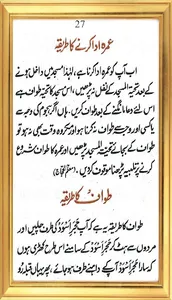 27
عمرہ ادا کرنے کا طریقہ
اب آپ کو عمرہ ادا کرنا ہے، لہٰذا مسجد میں داخل ہونے
کے بعد تحیۃ المسجد کے نفل نہ پڑھیں، اس مسجد کا تحیہ طواف ہے
اس لئے دعا مانگنے کے بعد طواف کریں، ہاں اگر ہجوم کی وجہ سے
یا کسی اور وجہ سے طواف نہ کرنا ہو اور مکروہ وقت بھی نہ ہو تو
طواف کے بجائے تحیۃ المسجد پڑھیں اور عمرہ کا طواف شروع
کرنے پر تلبیہ پڑھنا موقوف کر دیں۔
طواف کا طریقہ
طواف کا طریقہ یہ ہے کہ آپ حجر اسود کی طرف چلیں اور
مردوں سے ہٹ کر حجر اسود کے سامنے اس طرح کھڑی ہوں
کہ سارا حجر اسود آپ کے داہنے طرف ہو جائے، پھر یہاں قبلہ رو